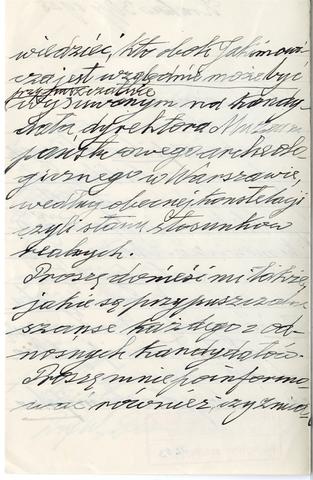 wiedzieć, kto obok Jakimowi-
cza jest względnie może być
przypuszczalnie
wysuwanym na kandy-
data, dyrektora Muzeum
państwowego archeolo-
gicznego w Warszawie,
według obecnej konstelacji
czyli stanu stosunków
realnych.
Proszę donieść mi także
jakie są przypuszczalne
szanse każdego z od-
nośnych kandydatów.
Proszę mnie poinformo-
wać również, czy